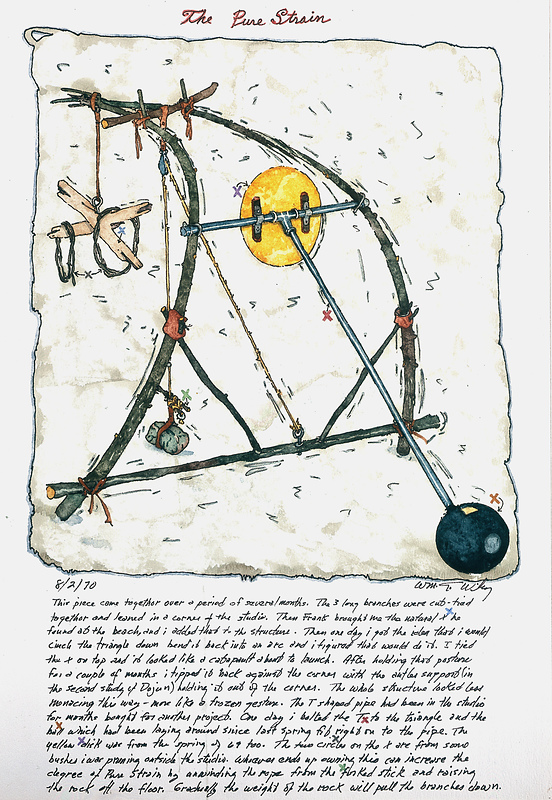 The Pure Strain
8/2/70
Wm. T. Wiley
This piece came together over a period of several months. The 3 long branches were cut-tied
together and leaned in a corner of the studio. Then Frank brought me the natural x he
found at the beach, and i added that to the structure. Then one day i got the idea that i would
cinch the triangle down bend it back into an arc and i figured that would do it. I tied
the x on top and it looked like a catapault about to launch. After holding that posture
For a couple of months i tipped it back against the corner with the antler support (in
the second study of Dojun) holding it out of the corner. The whole structure looked less
menacing this way - more like a frozen gesture. The T shaped pipe had been in the studio
for months bought for another project. One day i bolted the T to the triangle and the
ball which had been laying around since last spring fit right on to the pipe. The
yellow disk was from the spring of 69 too. The two circles on the x are from some
bushes i was pruning outside the studio. Whoever ends up owning this can increase the
degree of Pure Strain by unwinding the rope from the forked stick and raising
the rock off the floor. Gradually the weight of the rock will pull the branches down.